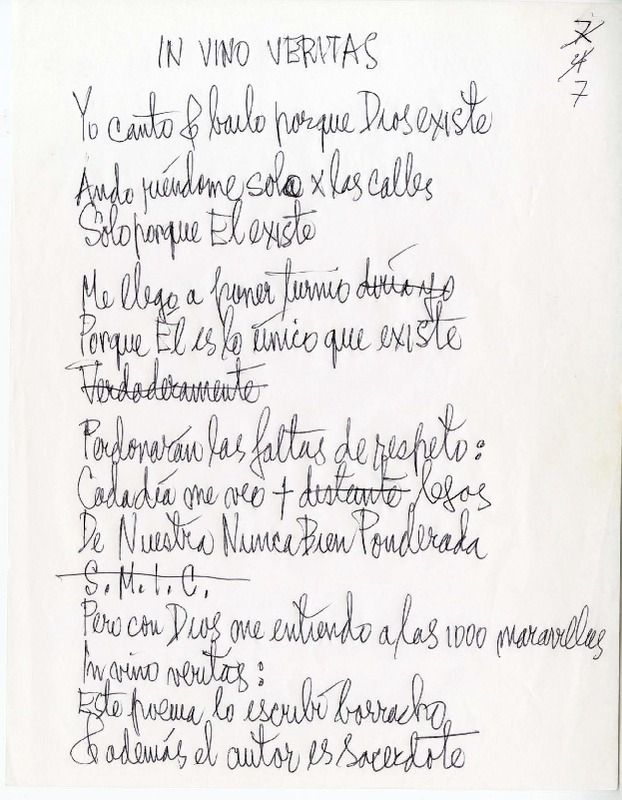 7
4
7
IN VINO VERITAS
Yo canto & bailo porque Dios existe
Ando riéndome solo x las calles
Solo porque El existe
Me llego a poner turnio diría yo
Porque Él es lo único que existe
Verdaderamente
Perdonarán las faltas de respeto:
Cada día me veo + distante lejos
De Nuestra Nunca Bien Ponderada
S.M.I.C.
Pero con Dios me entiendo a las 1000 maravillas
In vino veritas:
Este poema lo escribí borracho
& además el autor es sacerdote